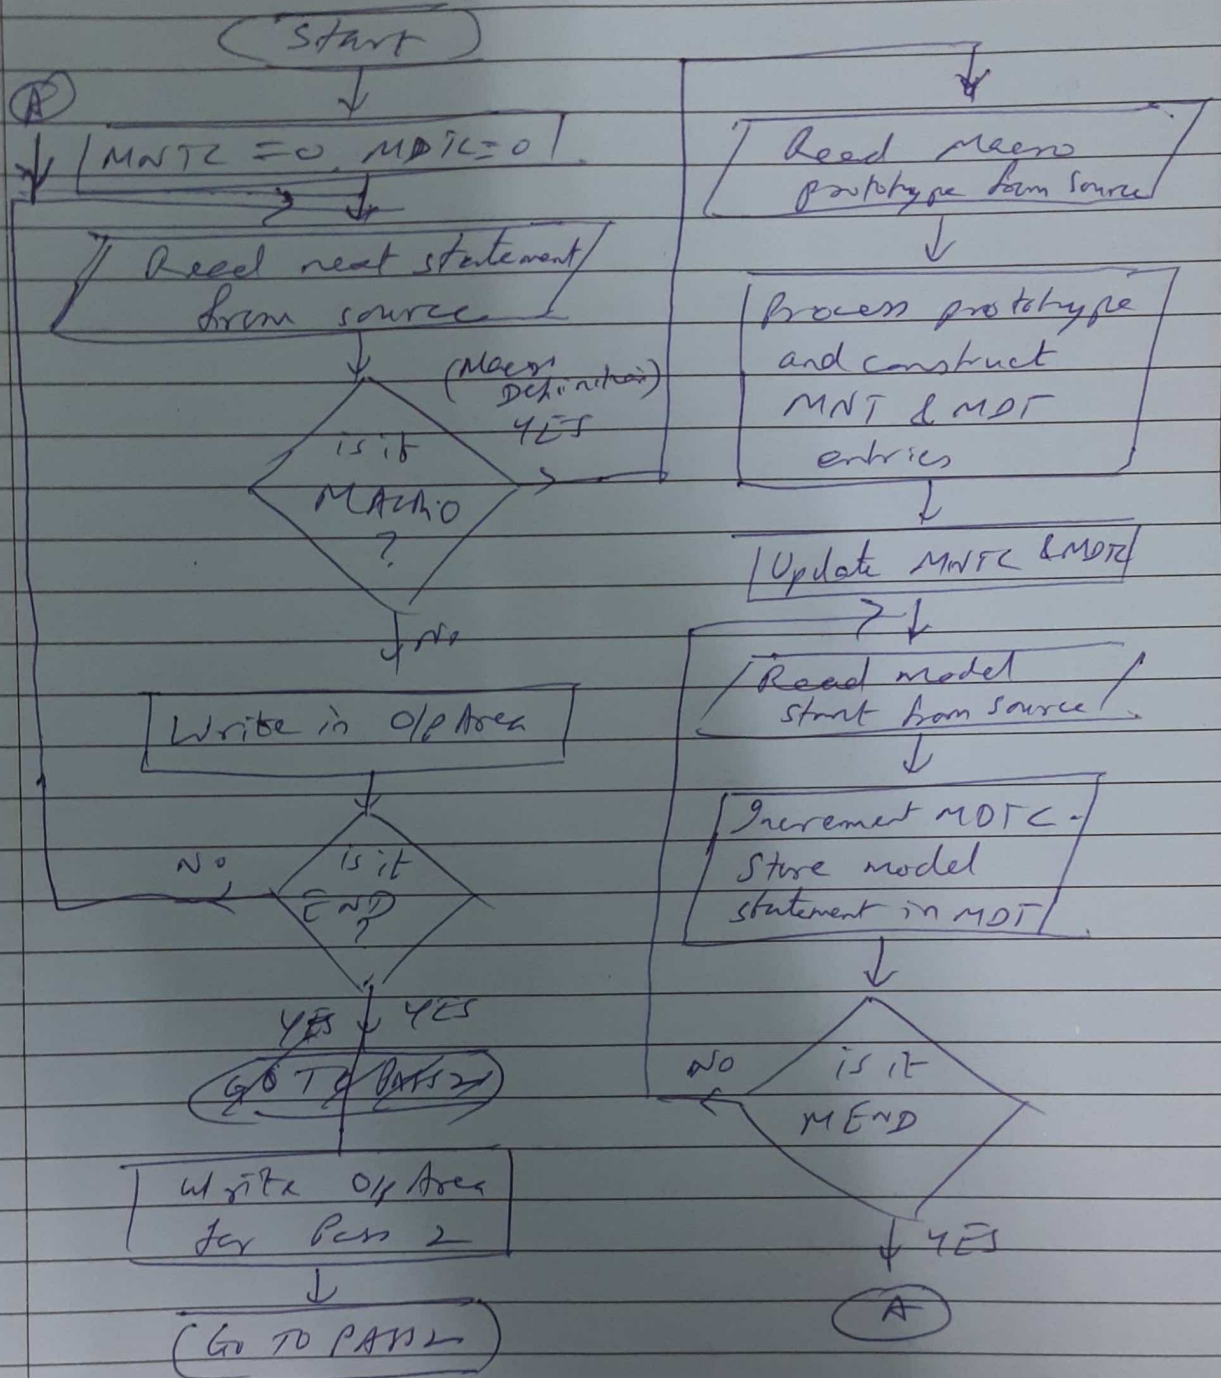 Start
A
MNTC = 0, MDTC = 0
Read next statement
from source
(Macro
Definition)
YES
is it
MACRO
?
No
Write in O/p Area
No
is it
END
?
YES
YES
GO TO PASS 2
Write O/p Area
for Pass 2
GO TO PASS 2
Read Macro
prototype from source
Process prototype
and construct
MNT & MDT
entries
Update MNTC & MDTC
Read model
stmt from source
Increment MDTC.
Store model
statement in MDT
NO
is it
MEND
YES
A